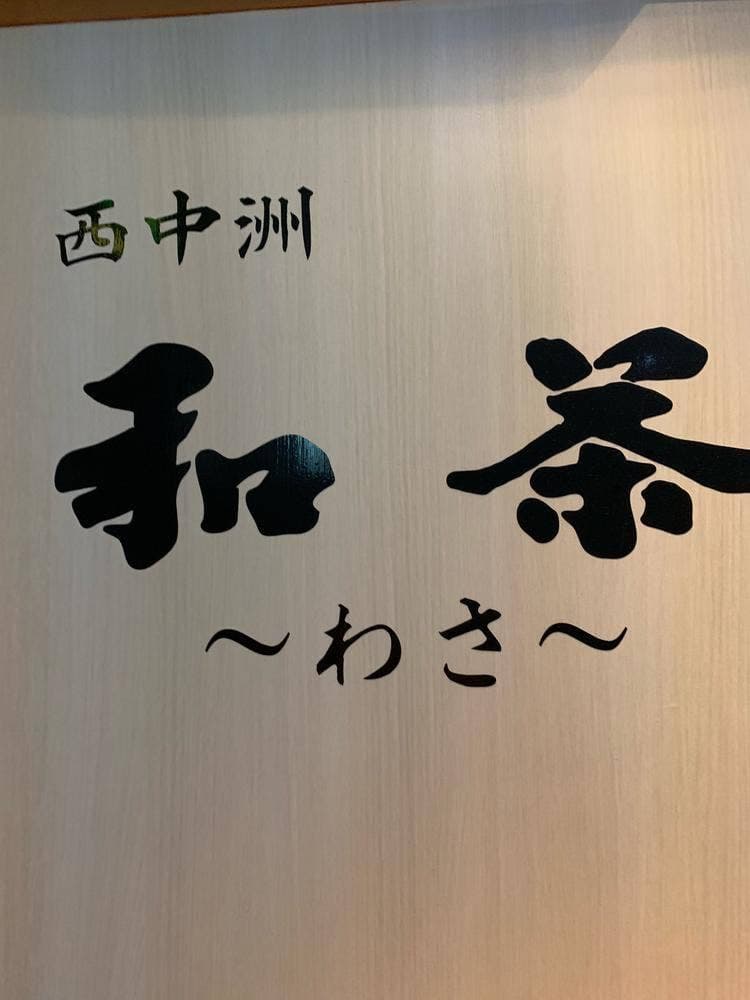 西中洲
和茶
～わさ～